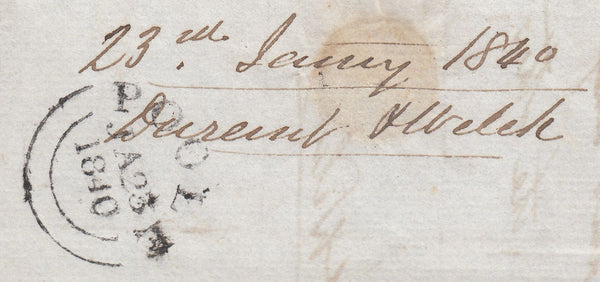 23rd Jany 1840
Durant & Welch
POOLE
JA 23
1840